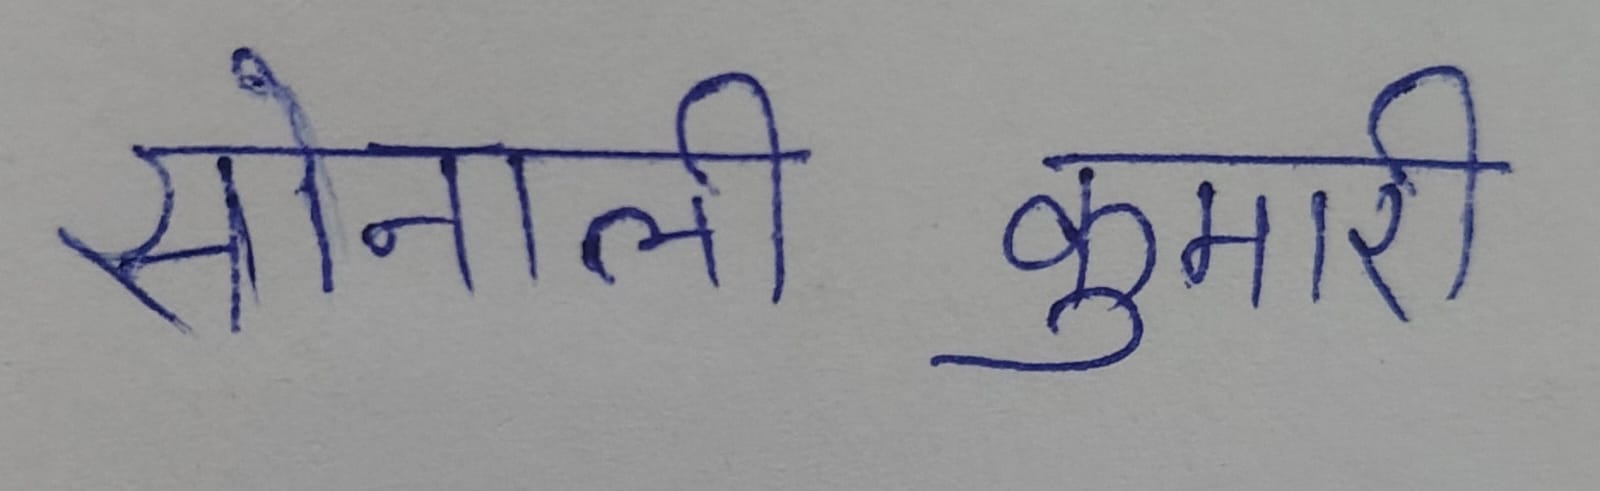 सोनाली कुमारी